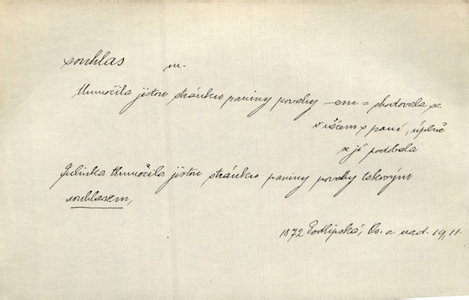 souhlas m.
tlumočila jistou stránku paniny povahy –em = shodovala se
v všem s paní, úplně
se jí podobala
Julinka tlumočila jistou stránku paniny povahy takovým
souhlasem,
1872 Podlipská, Os. a nad. 19, 11.